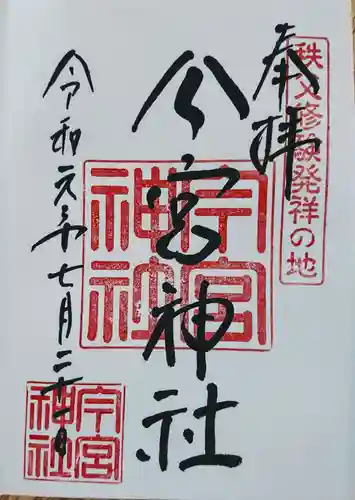 秩父修験発祥の地
奉拝
今宮神社
今宮神社
令和元年七月二十一日
今宮神社